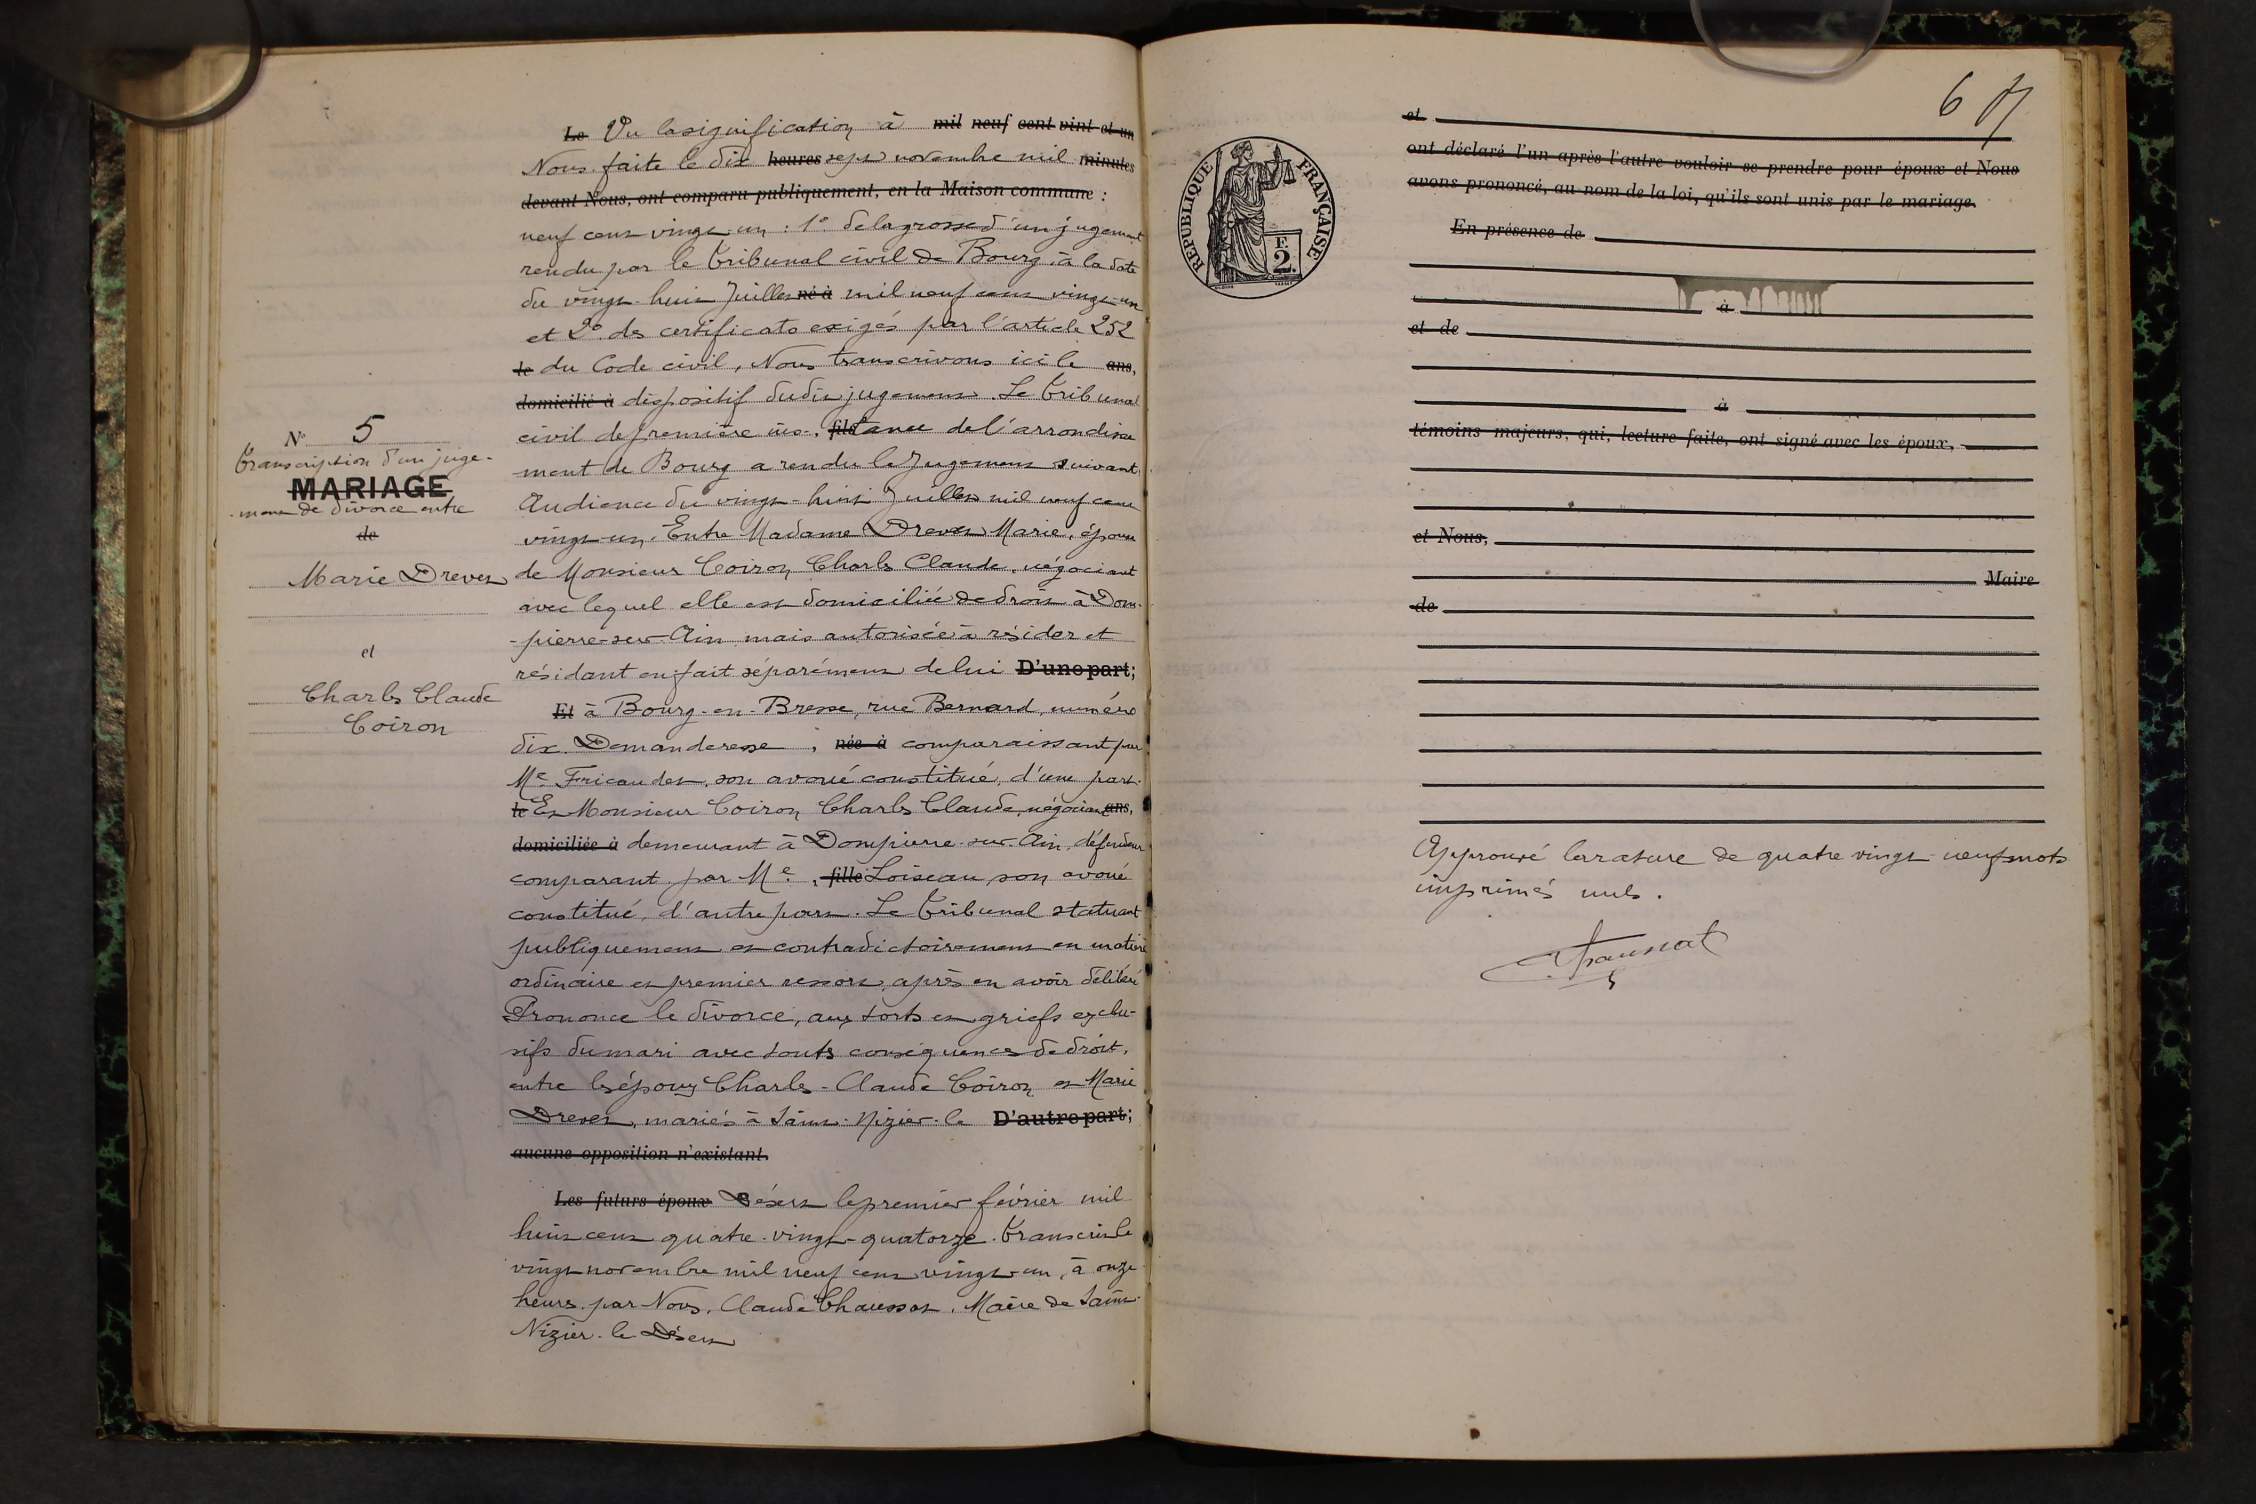 N° 5
Transcription d'un juge-
MARIAGE
-ment de divorce entre
de
Marie Drevet
et
Charles Claude
Coiron
Le Vu la signification à mil neuf cent vint et un
Nous faite le dix heures sept novembre mil minutes
devant Nous, ont comparu publiquement, en la Maison commune :
neuf cent vingt un : 1° de la grosse d'un jugement
rendu par le Tribunal civil de Bourg, à la date
du vingt-huit Juillet né à mil neuf cent vingt-un
et 2° des certificats exigés par l'article 252
le du Code civil, Nous transcrivons ici le ans,
domicilié à dispositif dudit jugement. Le Tribunal
civil de première ins-, fils tance de l'arrondisse
ment de Bourg a rendu le Jugement suivant.
Audience du vingt-huit Juillet mil neuf cent
vingt-un. Entre Madame Drevet Marie, épouse
de Monsieur Coiron Charles Claude, négociant
avec lequel elle est domiciliée de droit à Dom-
-pierre-sur-Ain, mais autorisée à résider et
résidant en fait séparément de lui D'une part;
Et à Bourg-en-Bresse, rue Bernard, numéro
dix. Demanderesse, née à comparaissant par
Me Fricaudet, son avoué constitué, d'une part.
le Et Monsieur Coiron Charles Claude, négociant ans,
domiciliée à demeurant à Dompierre-sur-Ain, défendeur
comparant par Me, fille Loiseau son avoué
constitué, d'autre part. Le Tribunal statuant
publiquement et contradictoirement en matière
ordinaire et premier ressort, après en avoir délibéré
Prononce le divorce, aux torts et griefs exclu-
sifs du mari avec toutes conséquences de droit,
entre les époux Charles-Claude Coiron et Marie
Drevet, mariés à Saint-Nizier-le D'autre part;
aucune opposition n'existant.
Les futurs époux Désert le premier février mil
huit cent quatre-vingt-quatorze. Transcrit le
vingt novembre mil neuf cent vingt-un, à onze
heures par Nous, Claude Chaussat, Maire de Saint-
Nizier-le Désert
6
REPUBLIQUE FRANÇAISE
F.
2.
et
ont déclaré l'un après l'autre vouloir se prendre pour époux et Nous
avons prononcé, au nom de la loi, qu'ils sont unis par le mariage.
En présence de
à
et de
à
témoins majeurs, qui, lecture faite, ont signé avec les époux,
et Nous,
Maire
de
Approuvé la rature de quatre vingt-neuf mots
imprimés nuls.
Chaussat